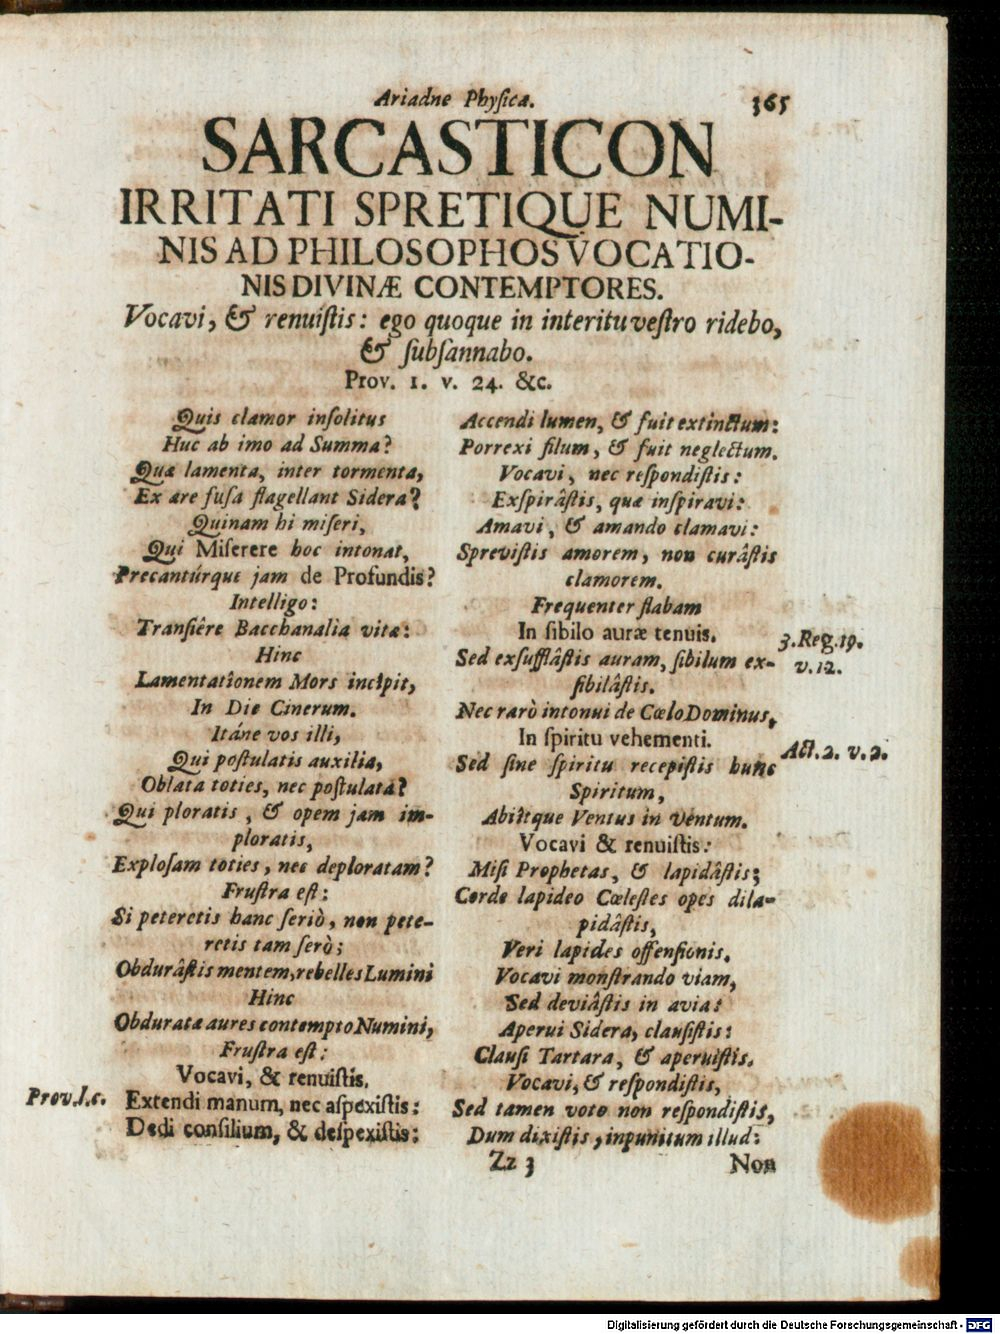 Ariadne Physica.
365
SARCASTICON
IRRITATI SPRETIQUE NUMI-
NIS AD PHILOSOPHOS VOCATIO-
NIS DIVINÆ CONTEMPTORES.
Vocavi, & renuiſtis: ego quoque in interitu veſtro ridebo,
& ſubſannabo.
Prov. 1. v. 24. &c.
Quis clamor inſolitus
Huc ab imo ad Summa?
Quæ lamenta, inter tormenta,
Ex ære fuſa flagellant Sidera?
Quinam hi miſeri,
Qui Miſerere hoc intonat,
Precantúrque jam de Profundis?
Intelligo:
Tranſiêre Bacchanalia vitæ:
Hinc
Lamentationem Mors incipit,
In Die Cinerum.
Itáne vos illi,
Qui poſtulatis auxilia,
Oblata toties, nec poſtulata?
Qui ploratis, & opem jam im-
ploratis,
Exploſam toties, nec deploratam?
Fruſtra eſt:
Si peteretis hanc ſeriò, non pete-
retis tam ſerò;
Obdurâſtis mentem, rebelles Lumini
Hinc
Obduratæ aures contempto Numini,
Fruſtra eſt:
Vocavi, & renuiſtis.
Prov. l. c.
Extendi manum, nec aſpexiſtis:
Dedi conſilium, & deſpexiſtis:
Accendi lumen, & fuit extinctum:
Porrexi filum, & fuit neglectum.
Vocavi, nec reſpondiſtis:
Exſpirâſtis, quæ inſpiravi:
Amavi, & amando clamavi:
Spreviſtis amorem, non curâſtis
clamorem.
Frequenter flabam
In ſibilo auræ tenuis.
3. Reg. 19.
v. 12.
Sed exſufflâſtis auram, ſibilum ex-
ſibilâſtis.
Nec rarò intonui de Cœlo Dominus,
In ſpiritu vehementi.
Act. 2. v. 2.
Sed ſine ſpiritu recepiſtis hunc
Spiritum,
Abiítque Ventus in ventum.
Vocavi & renuiſtis:
Miſi Prophetas, & lapidâſtis;
Corde lapideo Cœleſtes opes dila-
pidâſtis,
Veri lapides offenſionis.
Vocavi monſtrando viam,
Sed deviâſtis in avia:
Aperui Sidera, clauſiſtis:
Clauſi Tartara, & aperuiſtis.
Vocavi, & reſpondiſtis,
Sed tamen voto non reſpondiſtis,
Dum dixiſtis, inpunitum illud:
Zz 3
Non
Digitalisierung gefördert durch die Deutsche Forschungsgemeinschaft - DFG